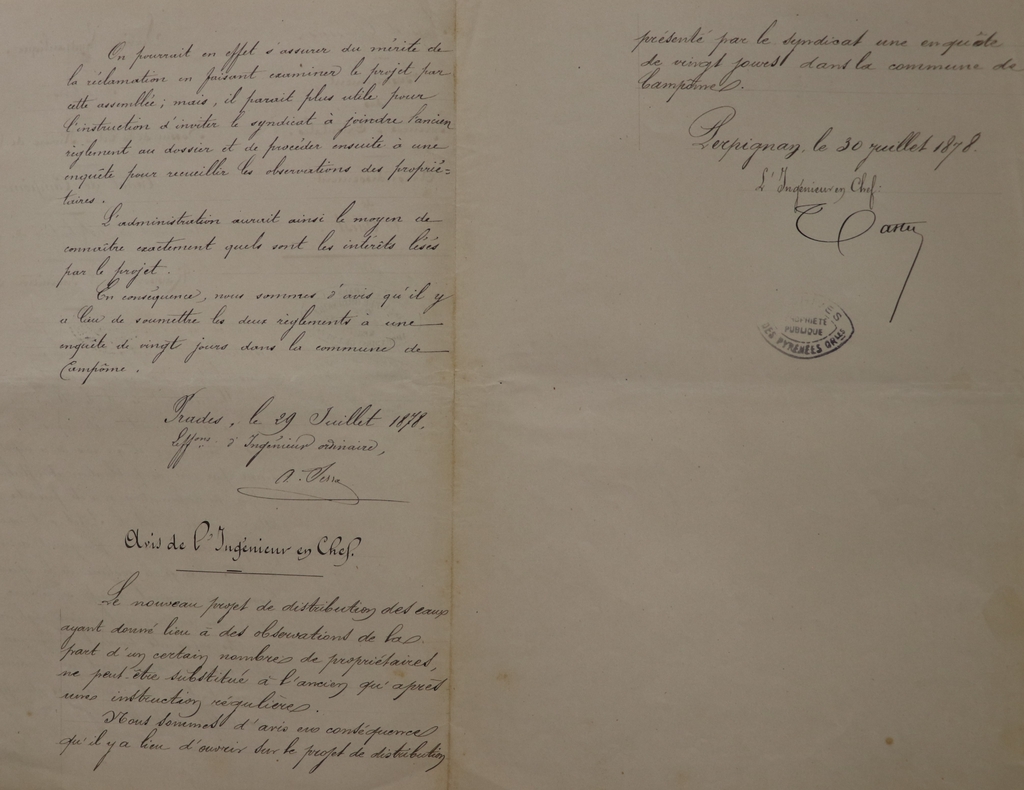 On pourrait en effet s'assurer du mérite de
la réclamation en faisant examiner le projet par
cette assemblée; mais, il parait plus utile pour
l'instruction d'inviter le syndicat à joindre l'ancien
règlement au dossier et de procéder ensuite à une
enquête pour recueillir les observations des proprié-
taires.
L'administration aurait ainsi le moyen de
connaître exactement quels sont les intérêts lésés
par le projet.
En conséquence, nous sommes d'avis qu'il y
a lieu de soumettre les deux règlements à une
enquête de vingt jours dans la commune de
Campôme.
Prades, le 29 Juillet 1878.
d'Ingénieur ordinaire,
Avis de l'Ingénieur en Chef.
Le nouveau projet de distribution des eaux
ayant donné lieu à des observations de la
part d'un certain nombre de propriétaires,
ne peut être substitué à l'ancien qu'après
une instruction régulière.
Nous sommes d'avis en conséquence
qu'il y a lieu d'ouvrir sur le projet de distribution
présenté par le syndicat une enquête
de vingt jours dans la commune de
Campôme.
Perpignan, le 30 juillet 1878.
L'Ingénieur en Chef:
PUBLIQUE
DES PYRÉNÉES ORles